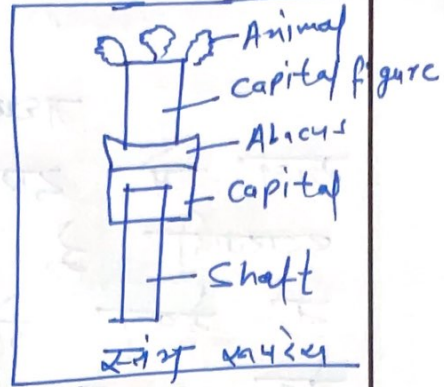 Animal
Capital figure
Abacus
Capital
Shaft
स्तंभ